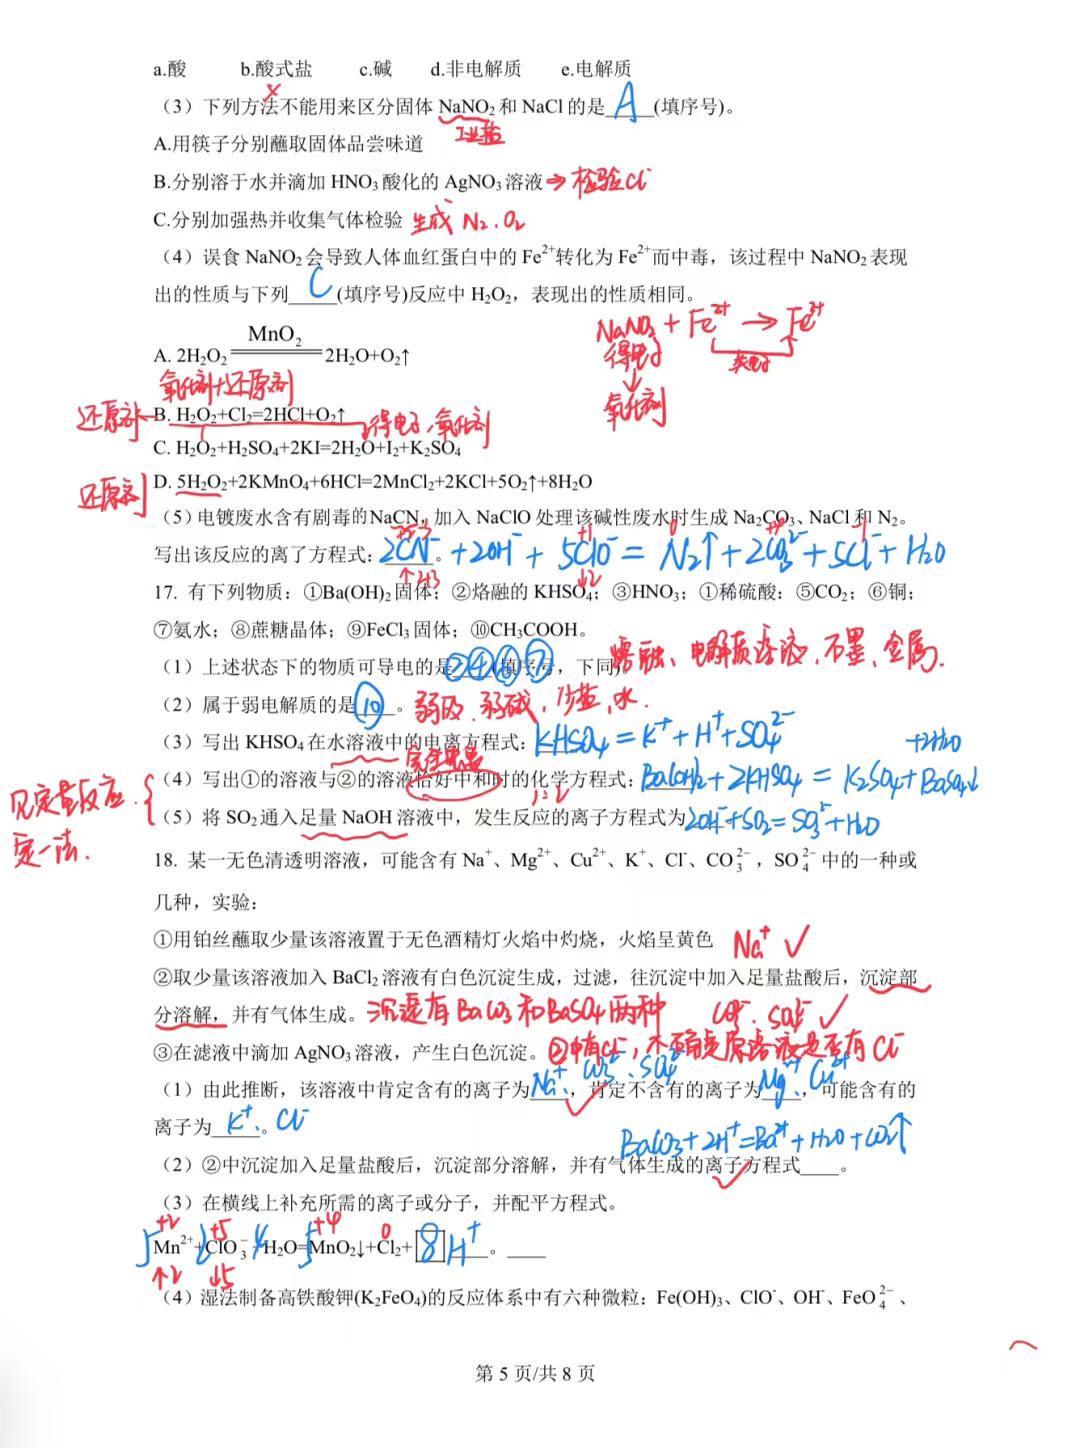 a.酸 b.酸式盐 c.碱 d.非电解质 e.电解质
（3）下列方法不能用来区分固体 NaNO₂ 和 NaCl 的是 A (填序号)。
工业盐
A.用筷子分别蘸取固体品尝味道
B.分别溶于水并滴加 HNO₃ 酸化的 AgNO₃ 溶液 → 检验Cl⁻
C.分别加强热并收集气体检验 生成 N₂、O₂
（4）误食 NaNO₂ 会导致人体血红蛋白中的 Fe²⁺转化为 Fe²⁺而中毒，该过程中 NaNO₂ 表现
出的性质与下列 C (填序号)反应中 H₂O₂，表现出的性质相同。
NaNO₂ + Fe²⁺ → Fe³⁺
得电子 失电子
氧化剂
A. 2H₂O₂ =MnO₂= 2H₂O+O₂↑
氧化剂+还原剂
还原剂 B. H₂O₂+Cl₂=2HCl+O₂↑ 得电子，氧化剂
C. H₂O₂+H₂SO₄+2KI=2H₂O+I₂+K₂SO₄
还原剂 D. 5H₂O₂+2KMnO₄+6HCl=2MnCl₂+2KCl+5O₂↑+8H₂O
（5）电镀废水含有剧毒的NaCN，加入 NaClO 处理该碱性废水时生成 Na₂CO₃、NaCl 和 N₂。
+2-3 +1 0 +4 -1
写出该反应的离了方程式: 2CN⁻ + 2OH⁻ + 5ClO⁻ = N₂↑ + 2CO₃²⁻ + 5Cl⁻ + H₂O
↓2
17. 有下列物质：①Ba(OH)₂ 固体；②熔融的 KHSO₄；③HNO₃；①稀硫酸：⑤CO₂；⑥铜；
⑦氨水；⑧蔗糖晶体；⑨FeCl₃ 固体；⑩CH₃COOH。
熔融、电解质溶液，石墨、金属.
（1）上述状态下的物质可导电的是 ②④⑥⑦ (填序号，下同)。
（2）属于弱电解质的是 ⑩ 。 弱酸、弱碱，少盐，水.
（3）写出 KHSO₄ 在水溶液中的电离方程式: KHSO₄ = K⁺ + H⁺ + SO₄²⁻
+2H₂O
（4）写出①的溶液与②的溶液恰好中和时的化学方程式: Ba(OH)₂ + 2KHSO₄ = K₂SO₄ + BaSO₄↓
1:2
见定量反应
定一法.
（5）将 SO₂ 通入足量 NaOH 溶液中，发生反应的离子方程式为 2OH⁻ + SO₂ = SO₃²⁻ + H₂O
18. 某一无色清透明溶液，可能含有 Na⁺、Mg²⁺、Cu²⁺、K⁺、Cl⁻、CO₃²⁻，SO₄²⁻ 中的一种或
几种，实验:
①用铂丝蘸取少量该溶液置于无色酒精灯火焰中灼烧，火焰呈黄色 Na⁺ ✓
②取少量该溶液加入 BaCl₂ 溶液有白色沉淀生成，过滤，往沉淀中加入足量盐酸后，沉淀部
分溶解，并有气体生成。 沉淀有 BaCO₃ 和 BaSO₄ 两种 CO₃²⁻、SO₄²⁻ ✓
③在滤液中滴加 AgNO₃ 溶液，产生白色沉淀。 ②中有Cl⁻，不确定原溶液是否有 Cl⁻
（1）由此推断，该溶液中肯定含有的离子为 Na⁺、CO₃²⁻、SO₄²⁻ ，肯定不含有的离子为 Mg²⁺、Cu²⁺ ，可能含有的
离子为 K⁺、Cl⁻ 。
BaCO₃ + 2H⁺ = Ba²⁺ + H₂O + CO₂↑
（2）②中沉淀加入足量盐酸后，沉淀部分溶解，并有气体生成的离子方程式____。
（3）在横线上补充所需的离子或分子，并配平方程式。
+2 +5 +4 0
5 Mn²⁺+ 2 ClO₃⁻+ 4 H₂O= 5 MnO₂↓+Cl₂+ 8 H⁺ 。____
↑2 ↓5
（4）湿法制备高铁酸钾(K₂FeO₄)的反应体系中有六种微粒：Fe(OH)₃、ClO⁻、OH⁻、FeO₄²⁻、
第 5 页/共 8 页